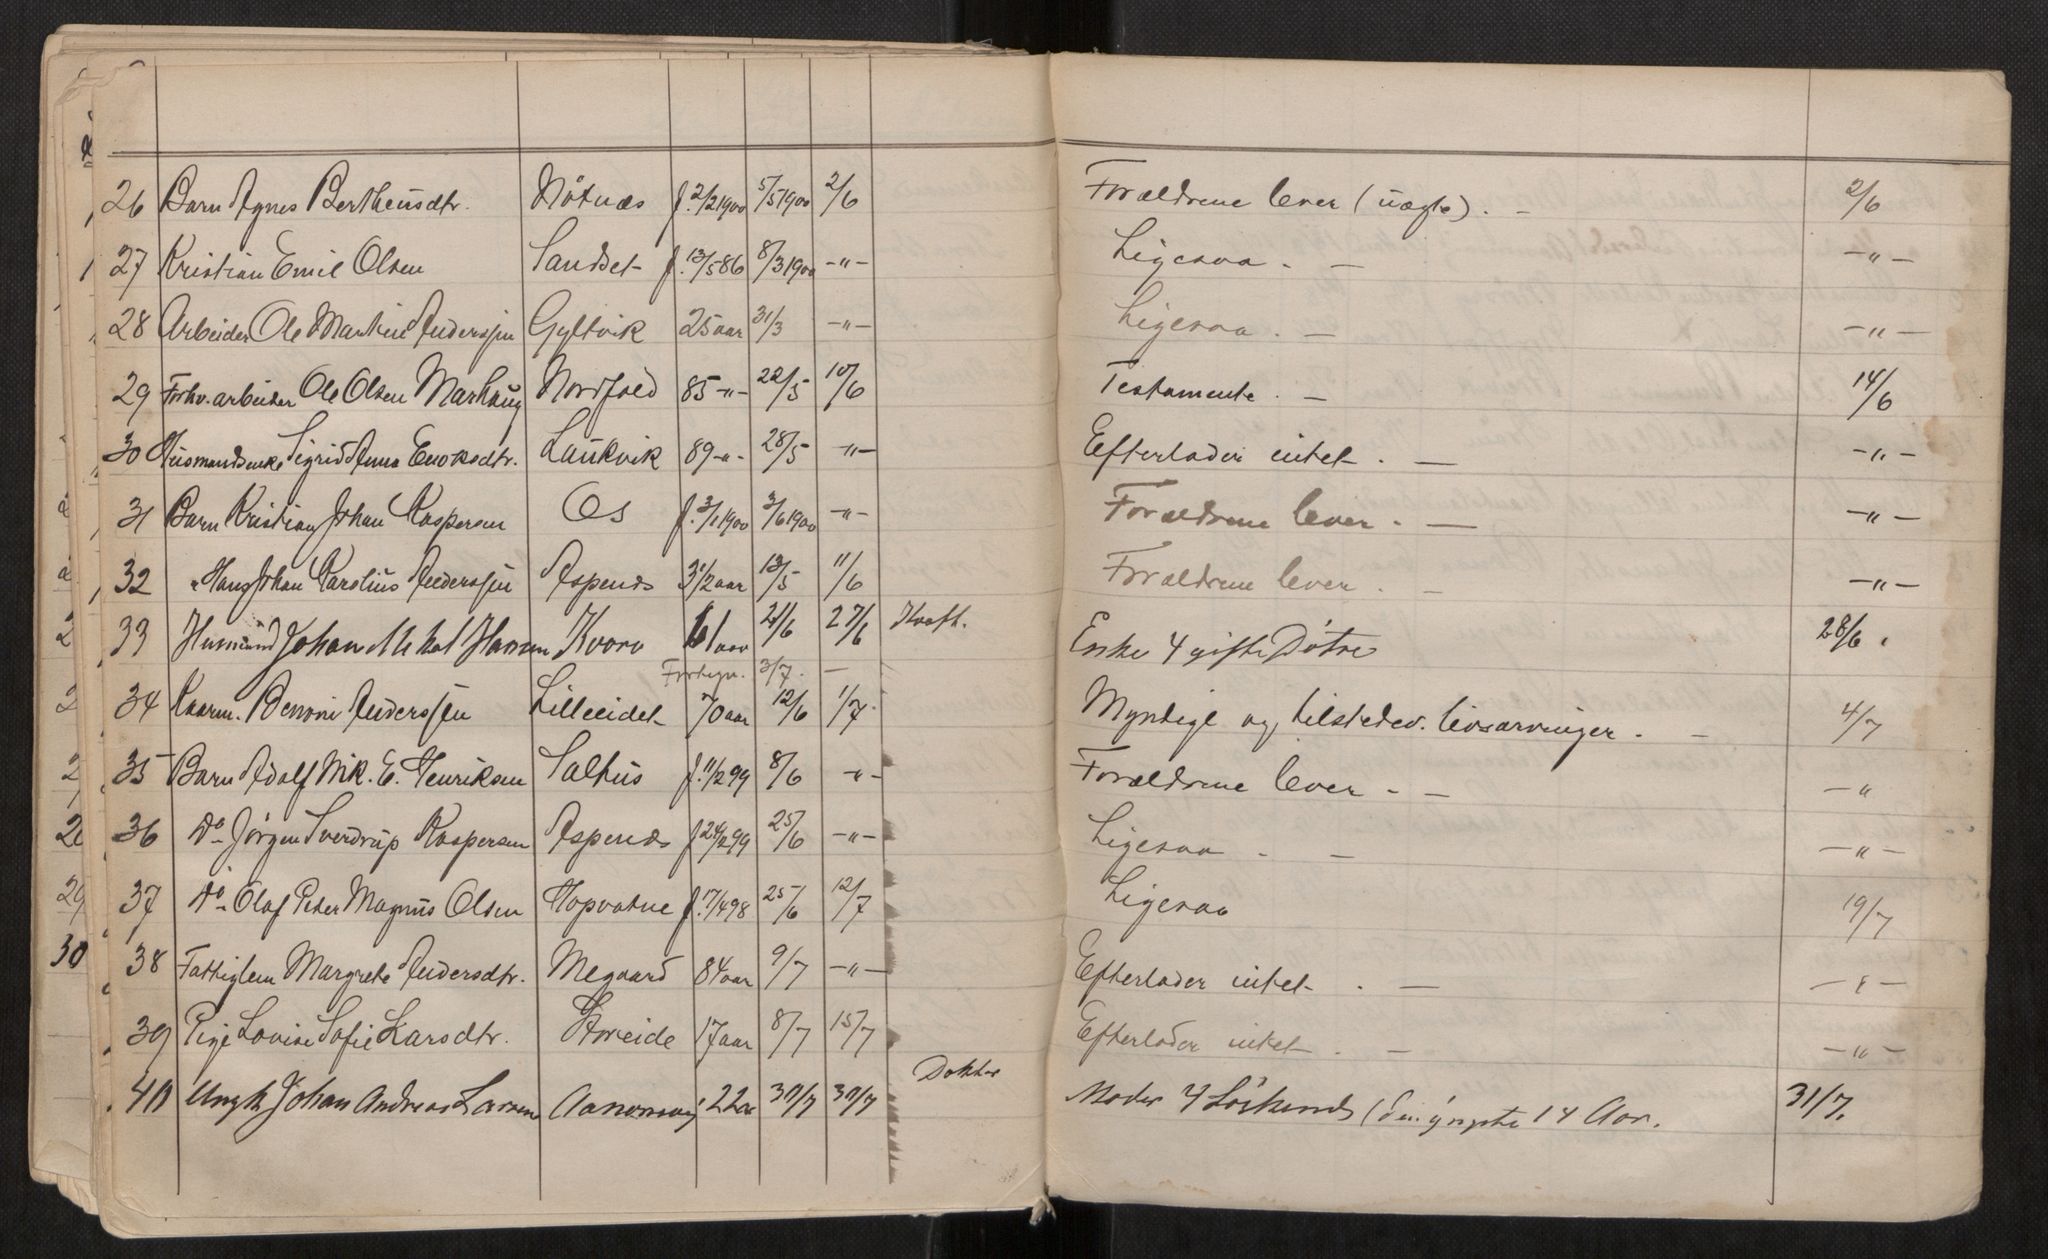 26 Barn Agnes Bertheusdtr. Nötnæs f. 2/2 1900 5/5 1900 2/6 Forældrene lever (uægte). — 2/6
27 Kristian Emil Olsen Sandset f. 13/5 86 8/3 1900 -"- Ligesaa. — -"-
28 Arbeider Ole Martin Anderssen Gyltvik 25 aar 31/3 -"- Ligesaa. — -"-
29 Forhv. arbeider Ole Olsen Marhaug Nordfold 85 -"- 22/5 10/6 Testamente. — 14/6
30 Husmandsenke Sigrid Anna Enoksdtr. Laukvik 89 -"- 28/5 -"- Efterlader intet. — -"-
31 Barn Kristian Johan Kaspersen Os f. 3/1 1900 3/6 1900 -"- Forældrene lever. — -"-
32 " Hans Johan Karolius Anderssen Aspenes 3 1/2 aar 13/5 11/6 Forældrene lever. — -"-
33 Husmand Johan Mikal Hansen Kvarv 61 aar 21/6 27/6 Enke 4 gifte Døtre 28/6.
3/7. —
34 Kaarm. Benoni Anderssen Lilleeidet 70 aar 12/6 1/7. Myndige og tilstedev. livsarvinger. — 4/7
35 Barn Adolf Mik. E. Henriksen Salhus f. 11/2 99 8/6 -"- Forældrene lever. — -"
36 Do Jörgen Sverdrup Kaspersen Aspenes f. 24/2 99 25/6 -"- Ligesaa. — -"-
37 Do Olaf Peter Magnus Olsen Hopvatne f. 17/4 98 25/6 12/7 Ligesaa 19/7
38 Fattiglem Margrete Andersdtr. Megaard 84 aar 9/7 -"- Efterlader intet. — -"-
39 Pige Lovise Sofie Larsdtr. 17 aar 8/7 15/7 Efterlader intet. — -"-
40 Ungk Johan Andreas Larsen 22 30/7 30/7 Dokter Moder 4 Söskende (den yngste 14 Aar. 31/7.